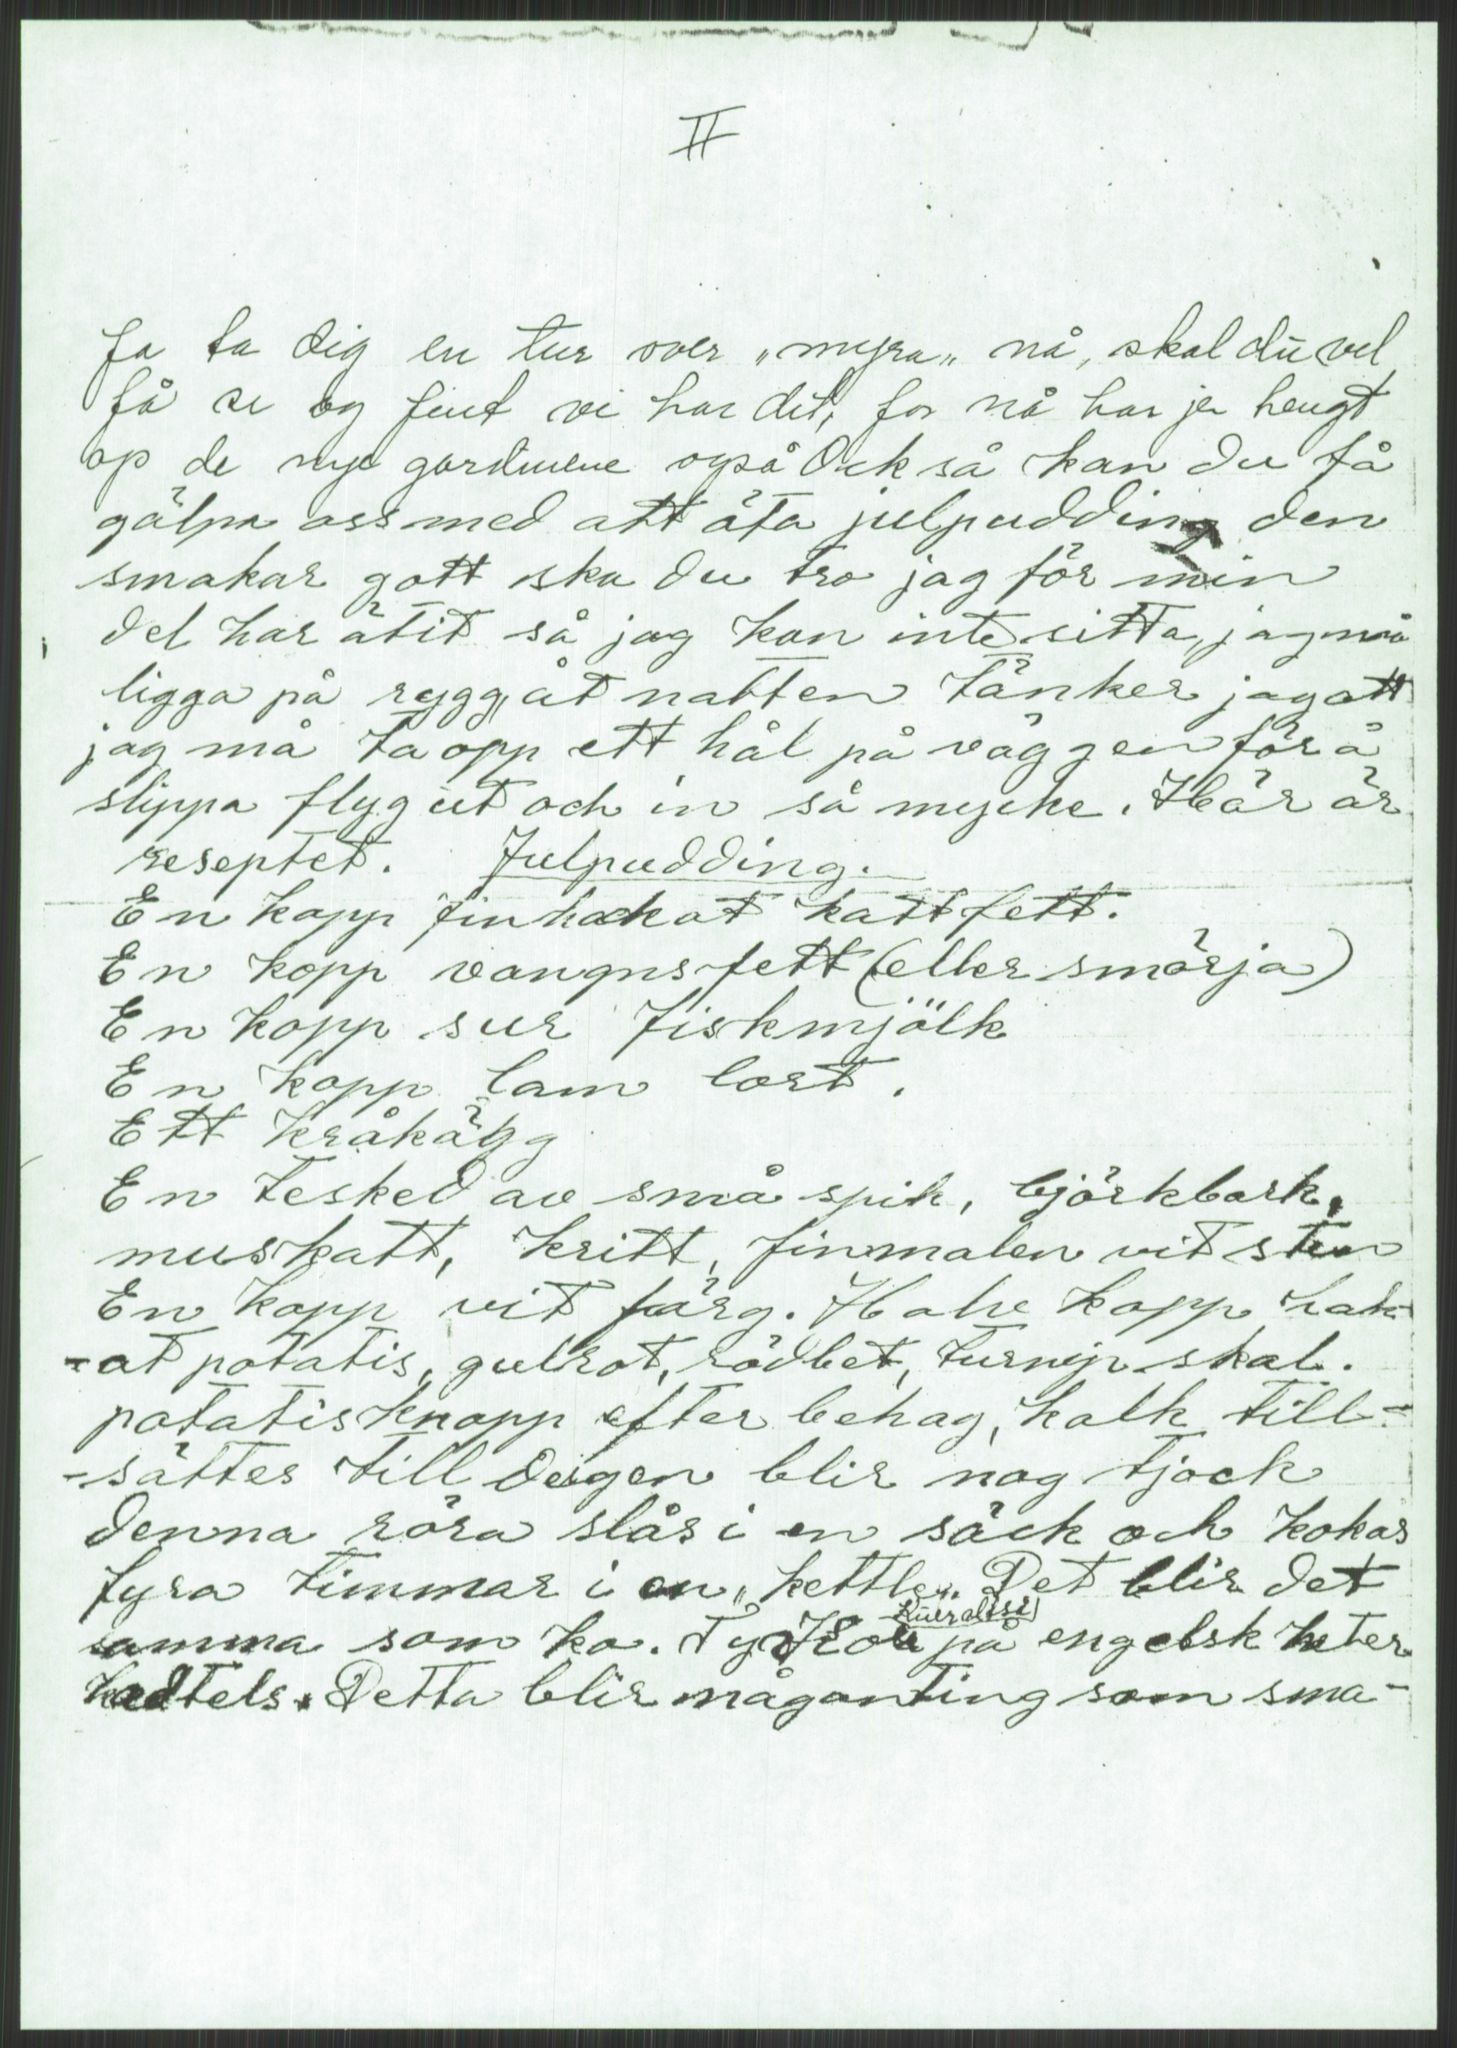 II
Ja ta dig en tur over „myra„ nå, skal du vel
få se og fint vi har det, for nå har je hengt
op de nye gardinene også Ock så kan du få
gälpa oss med att äta julpudding den
smakar gott ska du tro jag för min
del har ätit så jag kan inte sitta, jag må
ligga på rygg, åt natten tänker jag att
jag må ta opp ett hål på väggen för å
slippa flyg ut och in så mycke. Här är
reseptet. Julpudding.
En kopp finhackat kattfett.
En kopp vangnsfett (eller smörja)
En kopp sur fiskmjölk
En kopp lam lort.
Ett kråkägg
En tesked av små spik, björkbark,
muskatt, kritt, finmalen vit sten
En kopp vit färg. Halv kopp hak-
-at potatis, gulrot, rödbet, turnip skal.
potatisknopp efter behag, kalk till-
-sättes till degen blir nog tjock
denna röra slås i en säck och kokas
fyra timmar i en „kettle„. Det blir det
samma som ko. Ty Ko på engelsk heter
kedtels. Detta blir någonting som sma-